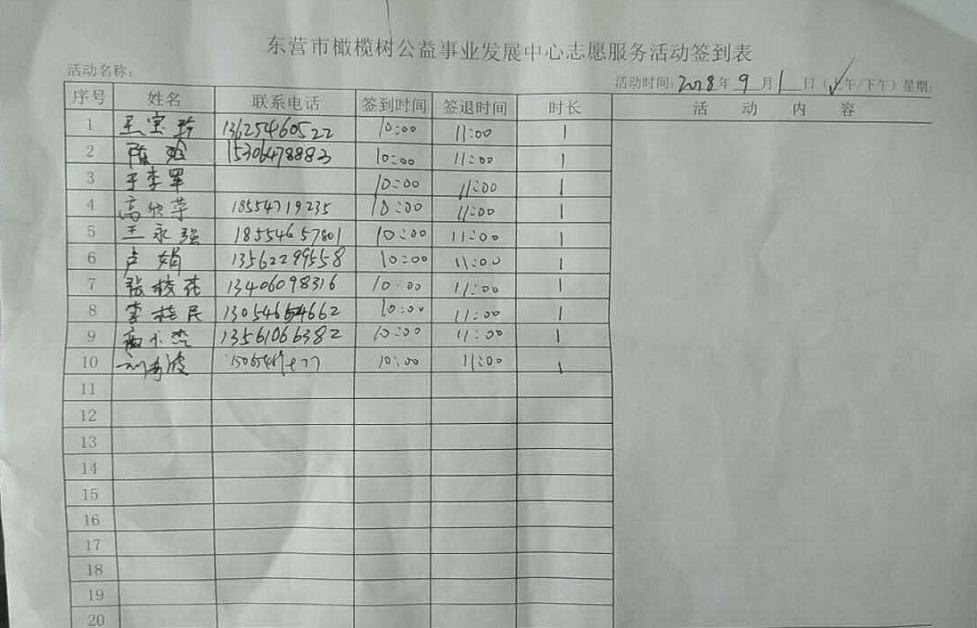 东营市橄榄树公益事业发展中心志愿服务活动签到表
活动名称: 活动时间: 2018年 9 月 1 日 (上午/下午) 星期:
序号 姓名 联系电话 签到时间 签退时间 时长 活动内容
1 王宝玲 13625460522 10:00 11:00 1
2 陈 15306478883 10:00 11:00 1
3 于李军 10:00 11:00 1
4 高欣萍 18554719235 10:00 11:00 1
5 王永强 18554657801 10:00 11:00 1
6 卢娟 13562289558 10:00 11:00 1
7 张枝花 13406098316 10:00 11:00 1
8 李桂民 13054654662 10:00 11:00 1
9 13561066382 10:00 11:00 1
10 刘 波 10:00 11:00 1
11
12
13
14
15
16
17
18
19
20